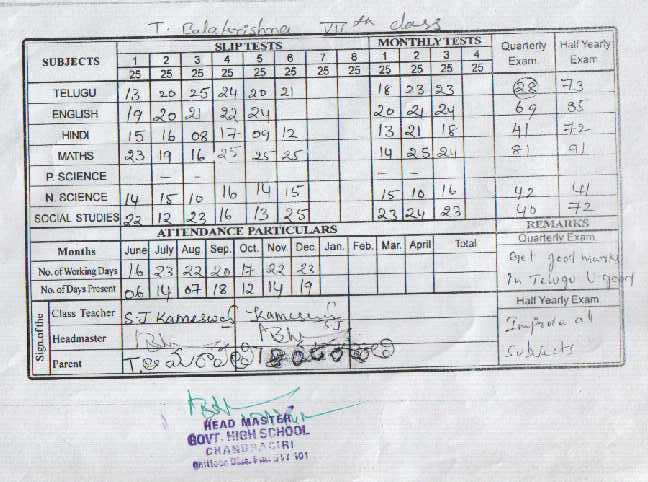 T. Balakrishna VII th class
SUBJECTS SLIP TESTS MONTHLY TESTS Quarterly Exam. Half Yearly Exam.
1 2 3 4 5 6 7 8 1 2 3 4
25 25 25 25 25 25 25 25 25 25 25 25
TELUGU 13 20 25 24 20 21 18 23 23 28 73
ENGLISH 19 20 21 22 24 20 21 24 69 85
HINDI 15 16 08 17 09 12 13 21 18 41 72
MATHS 23 19 16 25 25 25 14 25 24 81 91
P. SCIENCE - - - -
N. SCIENCE 14 15 10 16 14 15 15 10 16 42 41
SOCIAL STUDIES 22 12 23 16 13 25 23 24 23 40 72
ATTENDANCE PARTICULARS REMARKS
Months June July Aug. Sep. Oct. Nov. Dec. Jan. Feb. Mar. April Total Quarterly Exam
No. of Working Days 16 23 22 20 17 22 23 Get good marks
No. of Days Present 06 14 07 18 12 14 19 In Telugu
Sign of the Class Teacher S.J Kameswari Half Yearly Exam
Headmaster Improve all
Parent subjects
HEAD MASTER
GOVT. HIGH SCHOOL
CHANDRAGIRI